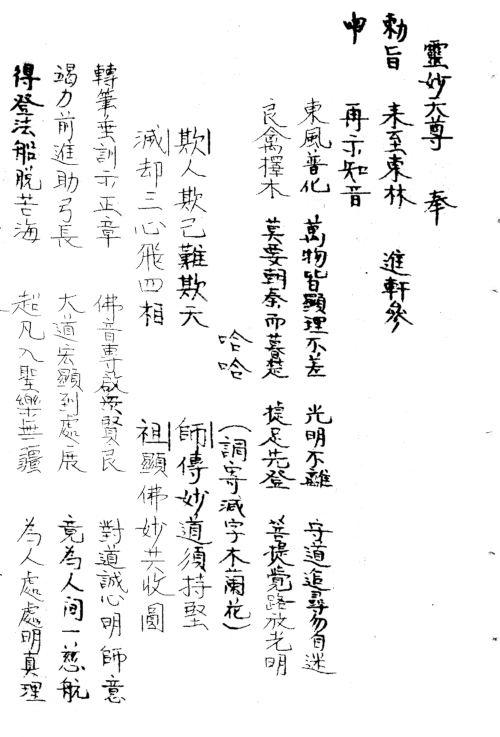 靈妙天尊　奉
勅旨　來至東林　進軒參
申　再示知音
東風普化　萬物皆顯理不差　光明不離　守道追尋勿自迷
良禽擇木　莫要朝秦而暮楚　捷足先登　菩提覺路放光明
哈哈　（調寄減字木蘭花）
欺人欺己難欺天　師傳妙道須持堅
滅却三心飛四相　祖顯佛妙共收圓
轉筆垂訓示正章　佛音專啟賢良　對道誠心明師意
竭力前進助弓長　大道宏顯到處展　竟為人間一慈航
得登法船脫苦海　超凡入聖樂無疆　為人處處明真理